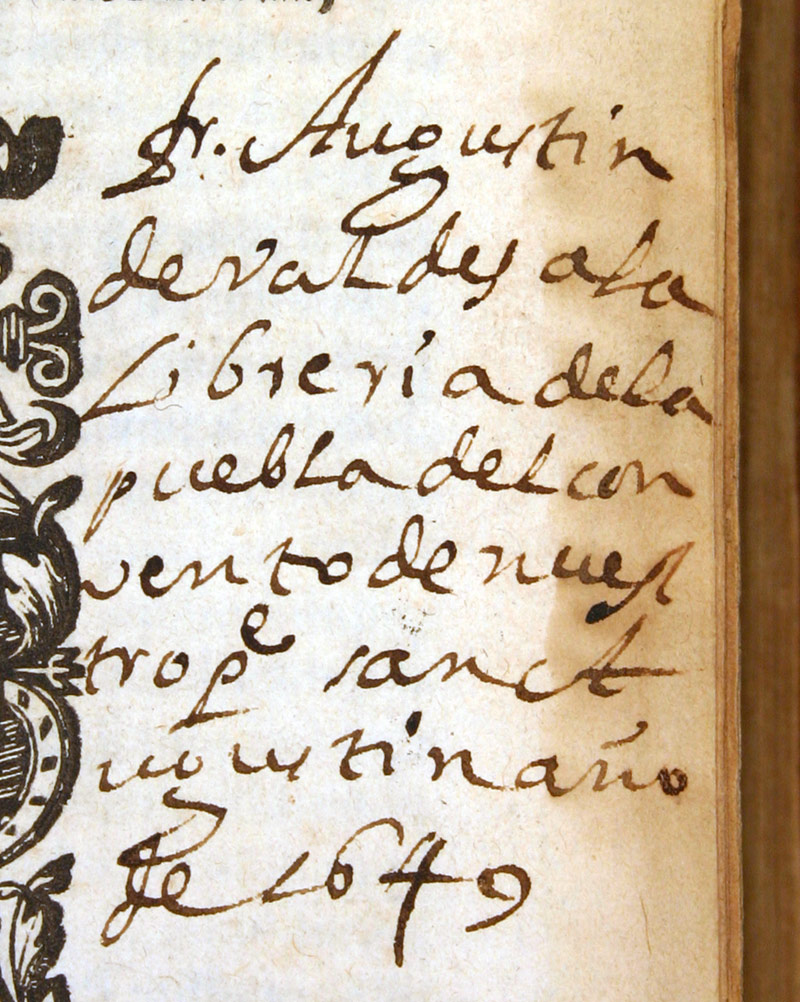 fr. Augustin
de valdes a la
Libreria de la
puebla del con
vento de nuest
tro pe sanct A
ugustin año
de 1649